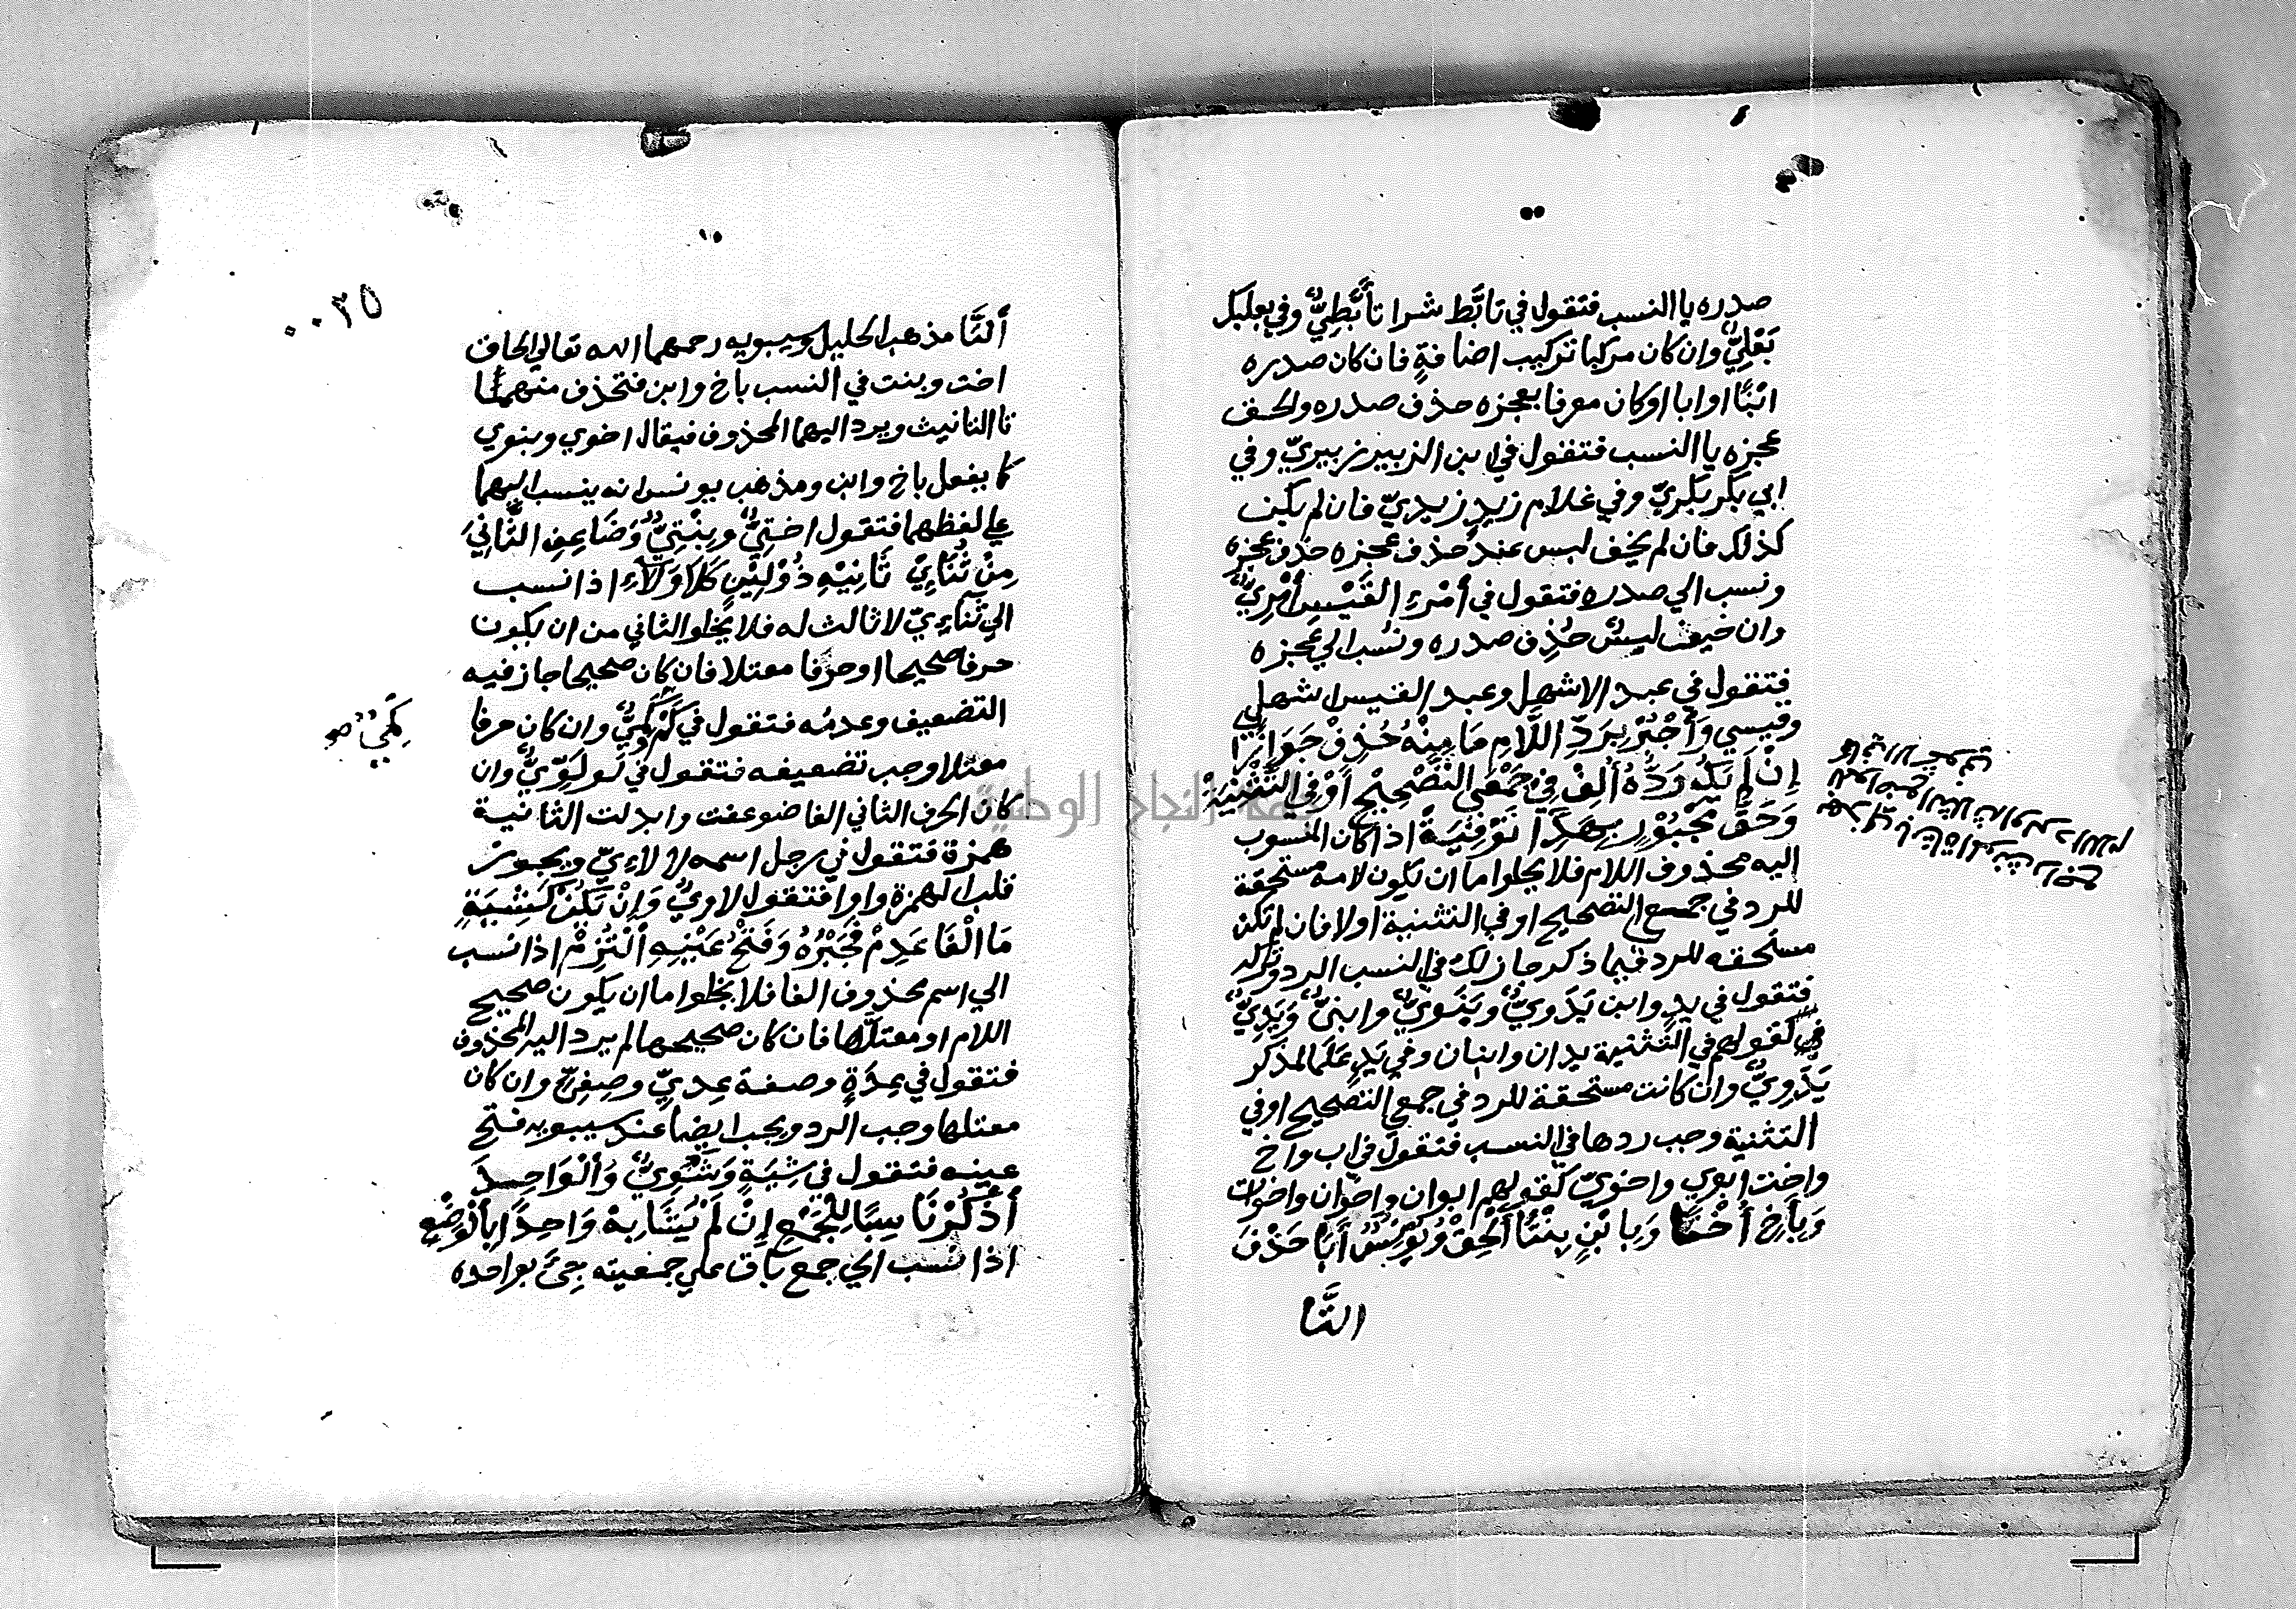 صدره يا النسب فتقول في تابَّط شرا تأَبَّطِيٌّ وفي بعلبك
بَعْلِيٌّ وان كان مركبا تركيب اضافةٍ فان كان صدره
ابْنًا او ابا او كان معرفا بعجزه حذف صدره ولحق
عجزه يا النسب فتقول في ابن الزبير زبيريّ وفي
ابي بكر بكريّ وفي غلام زيدٍ زيديّ فان لم يكن
كذلك فان لم يخف لبس عند حذف عجزه حذف عجزه
ونسب الي صدره فتقول في أمْرءِ القَيْسِ أمْرِيٌّ
وان خيف لبسٌ حُذِف صدره ونُسب الي عجزه
فتقول في عبد الاشهل وعبد القيس شهلي
وقيسي وَأجْبُرْ بِرَدِّ اللَّامِ مَا مِنْهُ حُذِفْ جَوَازًا
إنْ لَمْ يَكُ رَدُّهُ أُلِفْ فِي جَمْعَيِ التَّصْحِيْحِ أَوْ فِي التَّثْنِيَةْ
وَحَقُّ مَجْبُوْرٍ بِهَذِي تَوْفِيَةْ اذا كان المنسوب
اليه محذوف اللام فلا يخلوا ما ان تكون لامه مستحقة
للرد في جمع التصحيح او في التثنية اولا فان لم تكن
مستحقه للرد فيما ذكر جاز لك في النسب الرد وتركه
فتقول في يد وابن يَدَويٌّ وبَنَويٌّ وابنيٌّ وَيَدِيٌّ
كقولهم في التثنية يدان وابنان وفي يَدٍ عَلَمًا لمذكر
يَدَوِيٌّ وان كانت مستحقة للرد في جمع التصحيح او في
التثنية وجب ردها في النسب فتقول في اب واخ
واخت ابوي واخويّ كقولهم ابوان واخوان واخوات
وَبِأَخٍ أُخْتًا وَبِابْنٍ بِنْتًا أَلْحِقْ وَيُوْنُسُ أَبَا حَذْفَ
التَّا
ألتَّا مذهب الخليل وسيبويه رحمهما الله تعالي الحاق
اخت وبنت في النسب باخ وابن فتحذف منهما
تا التانيث ويرد اليهما المحذوف فيقال اخوي وبنوي
كما يفعل باخ وابن ومذهب يونس انه ينسب اليهما
علي لفظهما فتقول اختِيٌّ وبِنْتِيٌّ وَضَاعِفِ الثَّانِيَ
مِنْ ثُنَائِيْ ثَانِيْهِ ذُوْ لِيْنٍ كَلَا وَلَاءِ اذا نسب
الي ثُنَاءِيّ لا ثالث له فلا يخلوا الثاني من ان يكون
حرفا صحيحا او حرفا معتلا فان كان صحيحا جاز فيه
التضعيف وعدمُه فتقول في كَمْ كَمِيٌّ وان كان حرفا
كَمِّيٌّ صح
معتلا وجب تضعيفه فتقول في لو لَوِّيٌّ وان
كان الحرف الثاني الفا ضوعفت وابدلت الثانية
همزة فتقول في رجل اسمه لا لاءِيّ ويجوز
قلب الهمزة واوا فتقول لاويٌّ وَإنْ يَكُنْ كَشِيَةٍ
مَا الْفَا عَدِمْ فَجَبْرُهُ وَفَتْحُ عَيْنِهِ الْتُزِمْ اذا نسب
الي اسم محذوف الفا فلا يخلوا ما ان يكون صحيح
اللام او معتلَّها فان كان صحيحها لم يرد اليه المحذوف
فتقول في عِدَةٍ وصفة عِديّ وصِفِيّ وان كان
معتلها وجب الرد ويجب ايضا عند سيبويه فتح
عينه فتقول في شِيَةٍ وِشَوِيٌّ وَالْوَاحِدَ
أذْكُرْ نَاسِبًا لِلْجَمْعِ إِنْ لَمْ يُشَابِهْ وَاحِدًا بِالْوَضْعِ
اذا نسب الي جمع باق علي جمعيته جيَ بواحده
٠٠٣٥